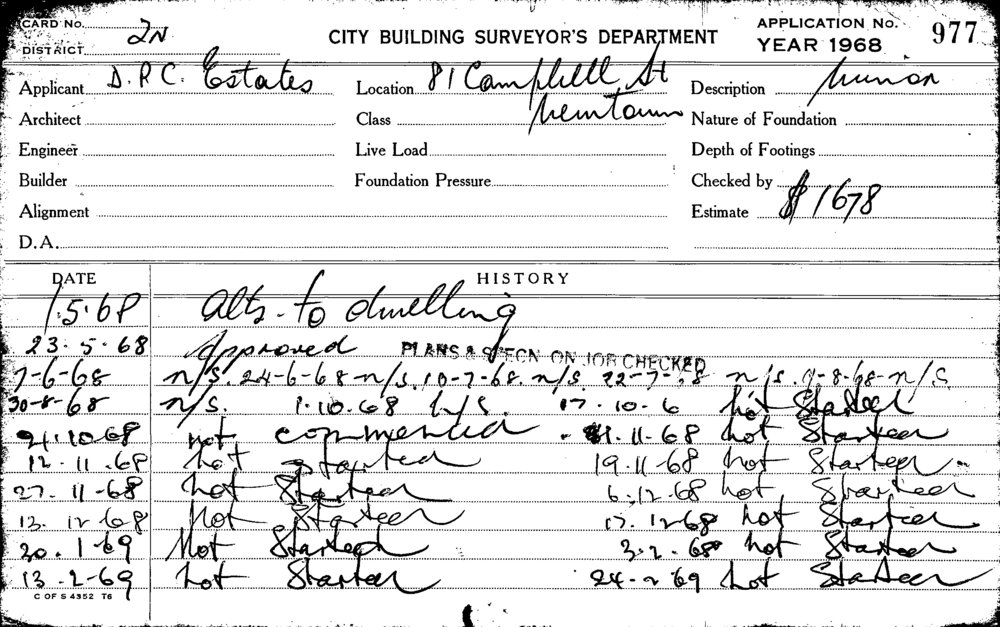 CARD No. 2N
DISTRICT
CITY BUILDING SURVEYOR'S DEPARTMENT
APPLICATION No. 977
YEAR 1968
Applicant D.P.C. Estates Location 81 Campbell St Description
Architect Class Newtown Nature of Foundation
Engineer Live Load Depth of Footings
Builder Foundation Pressure Checked by
Alignment Estimate $1678
D.A.
DATE HISTORY
1.5.68 Alts. to dwelling
23.5.68 Approved PLANS & SPECN ON JOB CHECKED
7-6-68 n/s. 24-6-68-n/s. 10-7-68. n/s. 22-7-68 n/s. 9-8-68-n/s.
30-8-68 n/s. 1.10.68 n/s. 17.10.6 not Started
21.10.68 not commenced 11.68 not Started
12.11.68 not started 19.11.68 not Started
27.11.68 not Started 6.12.68 not Started
12.12.68 Not Started 17.12.68 not Started
30.1.69 Not Started 3.2.68 not Started
13.2.69 not Started 24.2.69 not Started
C OF S 4352 T6